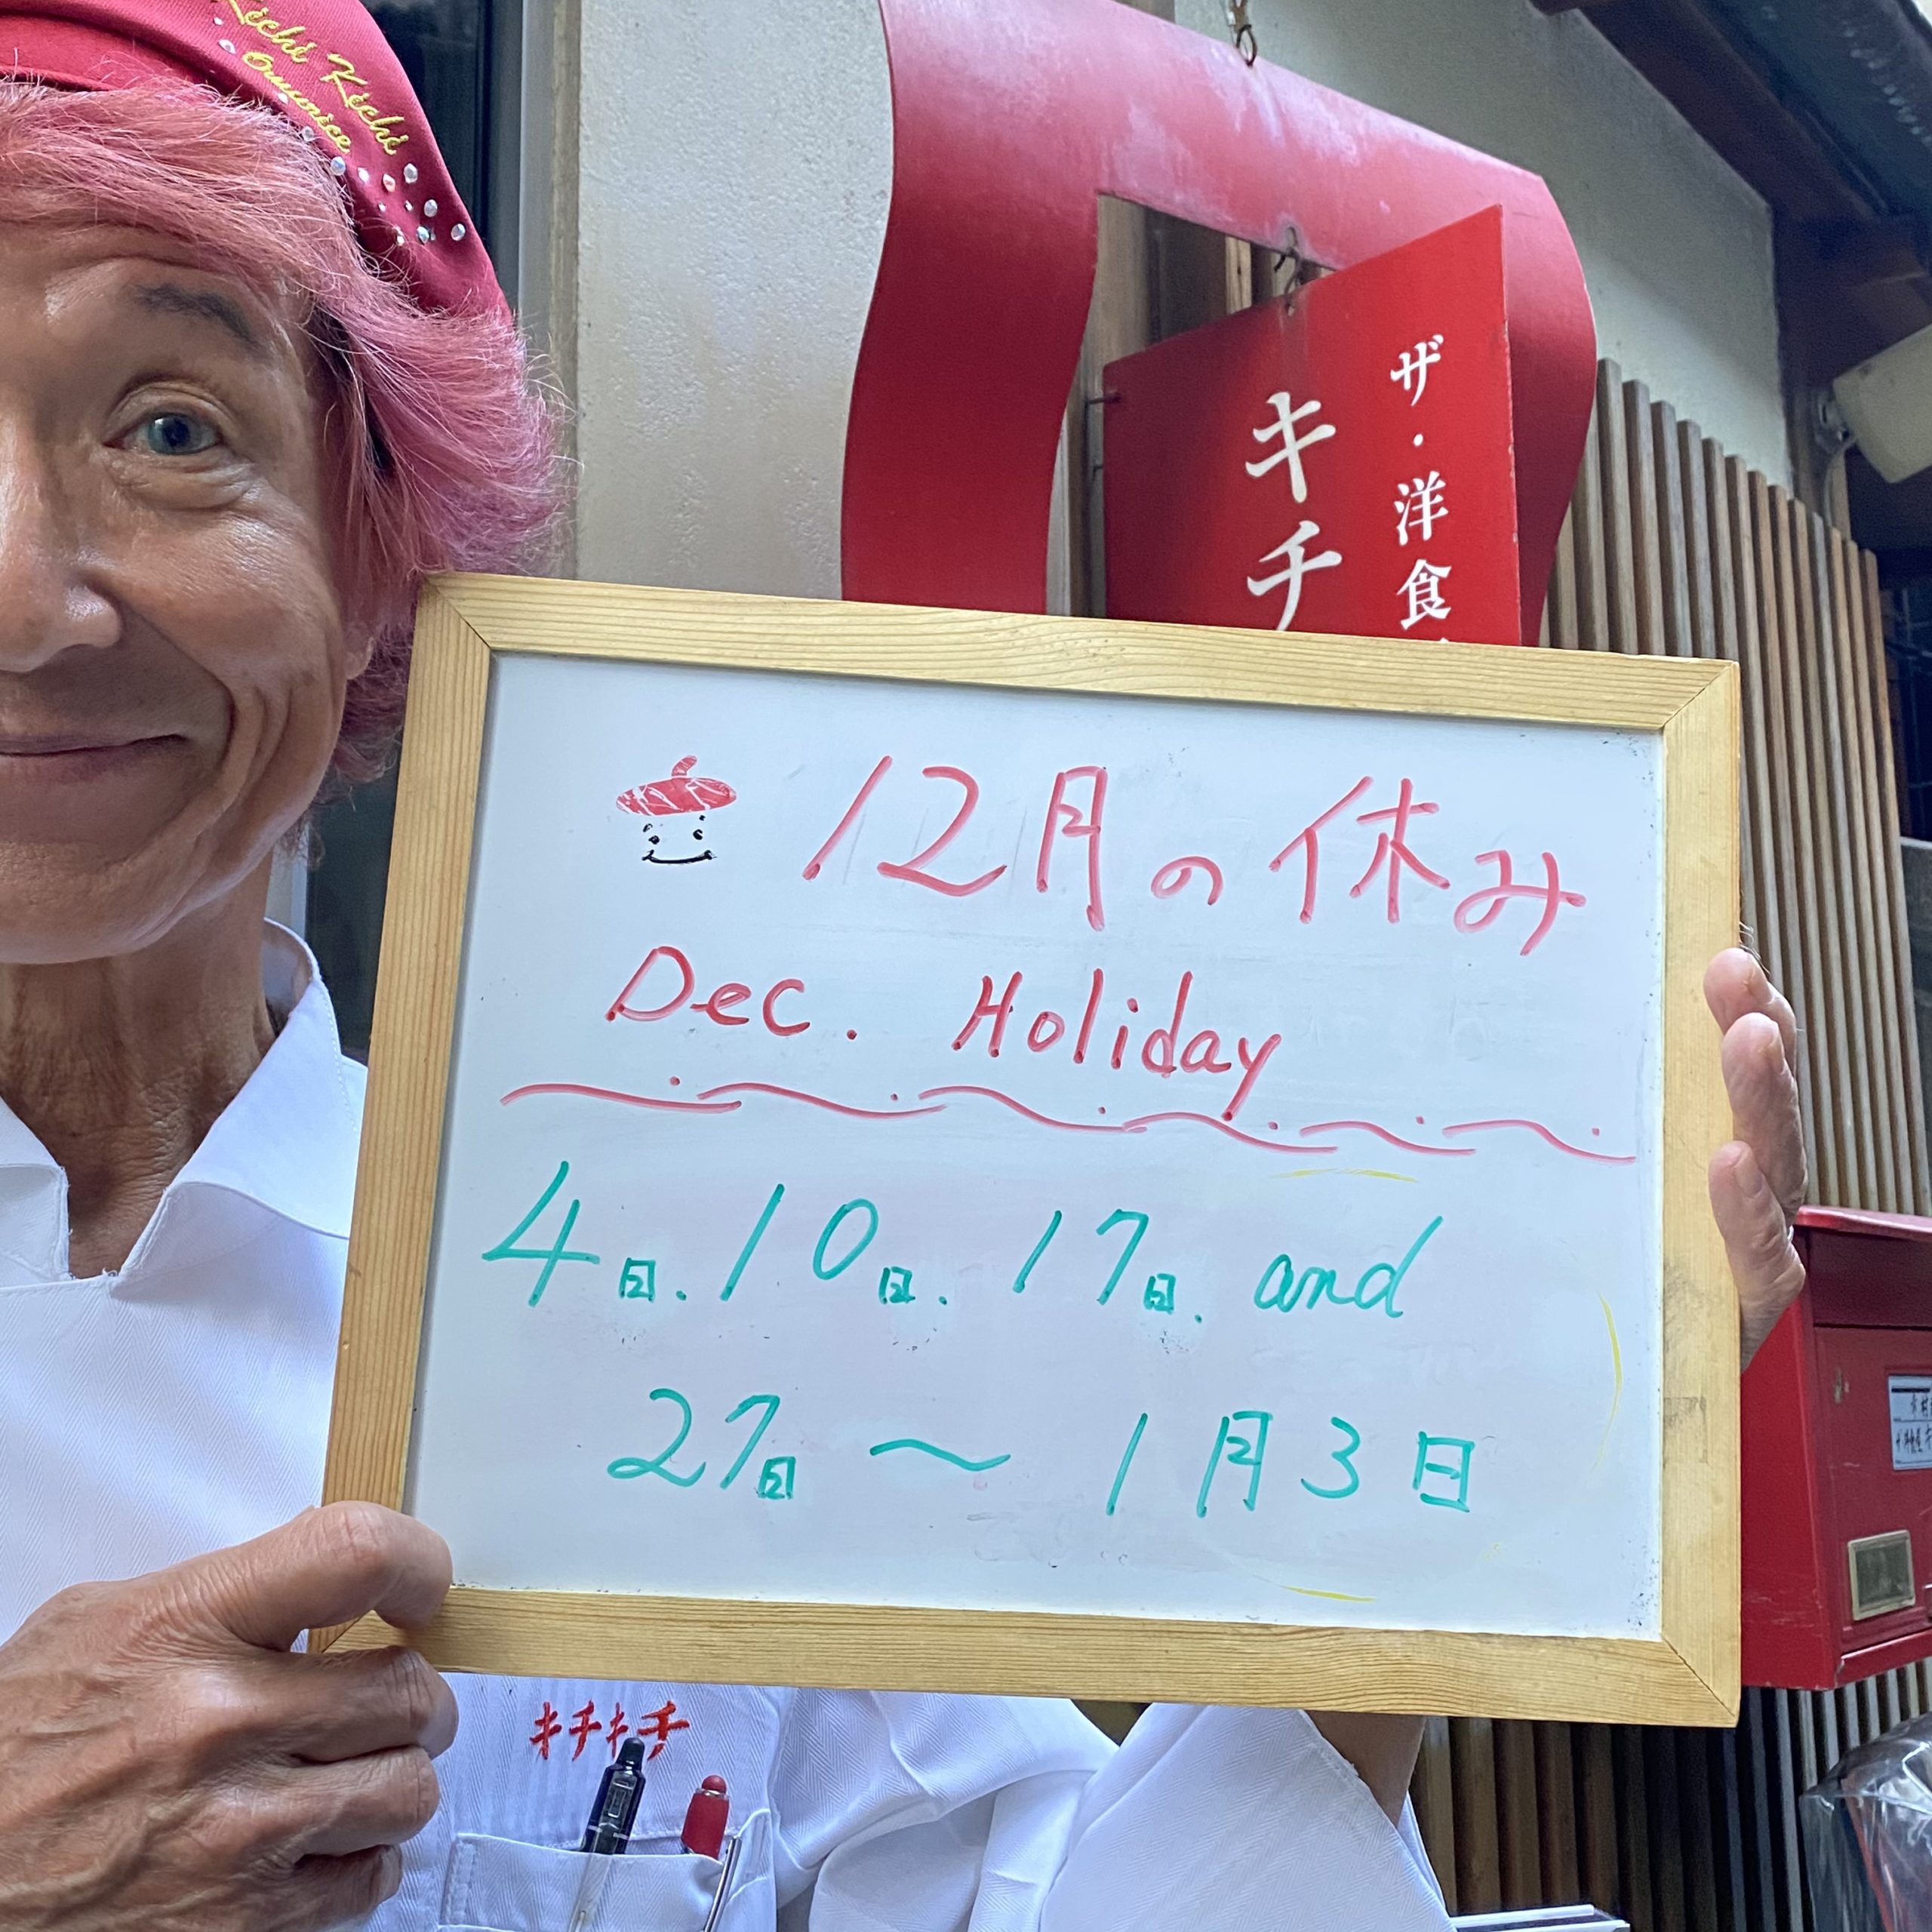 Kichi Kichi
Omurice
ザ・洋食
キチ
12月の休み
Dec. Holiday
4日. 10日. 17日. and
27日 〜 1月3日
キチキチ